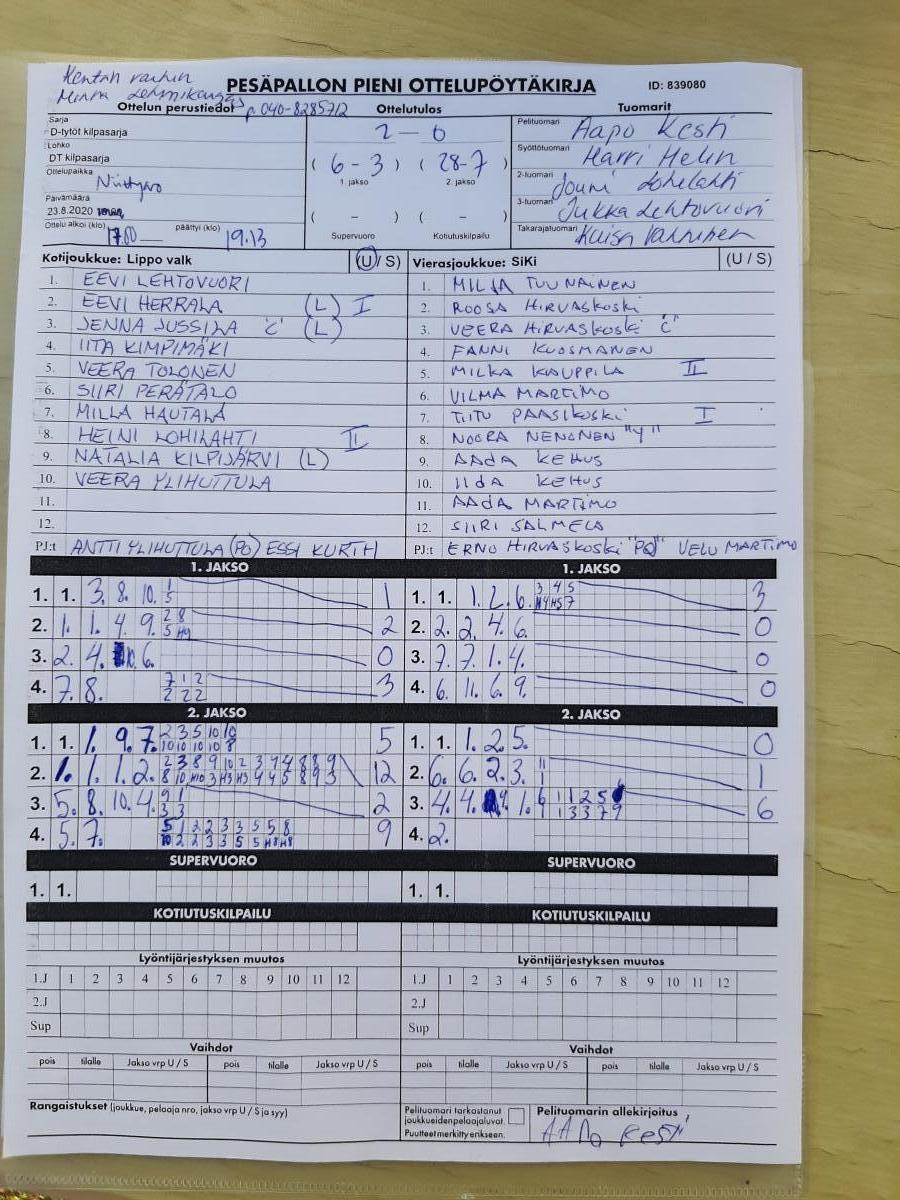 Kentän vanhin
Minna Lehmikangas
p. 040-8285712
PESÄPALLON PIENI OTTELUPÖYTÄKIRJA
ID: 839080
Ottelun perustiedot
Sarja
D-tytöt kilpasarja
Lohko
DT kilpasarja
Ottelupaikka
Päivämäärä
23.8.2020
Ottelu alkoi (klo) 17.00 päättyi (klo) 19.13
Ottelutulos
2 - 0
( 6 - 3 ) ( 28-7 )
1. jakso 2. jakso
( - ) ( - )
Supervuoro Kotiutuskilpailu
Tuomarit
Pelituomari Aapo Kesti
Syöttötuomari Harri Helin
2-tuomari Jouni Lohilahti
3-tuomari Jukka Lehtovuori
Takarajatuomari Kaisa
Kotijoukkue: Lippo valk (U / S)
1. EEVI LEHTOVUORI
2. EEVI HERRALA (L) I
3. JENNA JUSSILA "C" (L)
4. IITA KIMPIMÄKI
5. VEERA TOLONEN
6. SIIRI PERÄTALO
7. MILLA HAUTALA
8. HEINI LOHILAHTI II
9. NATALIA KILPIJÄRVI (L)
10. VEERA YLIHUTTULA
11.
12.
PJ:t ANTTI YLIHUTTULA (PO) ESSI KURTH
Vierasjoukkue: SiKi (U / S)
1. MILJA TUUNAINEN
2. ROOSA HIRVASKOSKI
3. VEERA HIRVASKOSKI "C"
4. FANNI KUOSMANEN
5. MILKA KAUPPILA II
6. VILMA MARTIMO
7. TIITU PAASIKOSKI I
8. NOORA NENONEN "Y"
9. AADA KEHUS
10. IIDA KEHUS
11. AADA MARTIMO
12. SIIRI SALMELA
PJ:t ERNO HIRVASKOSKI "PQ" VELU MARTIMO
1. JAKSO
1. 1. 3. 8. 10. 1
5
1
2. 1. 1. 4. 9. 2 8
5 H9
2
3. 2. 4. 6. 0
4. 7. 8. 7 1 2
2 2 2
3
1. JAKSO
1. 1. 1. 2. 6. 3 4 5
H4 H5 7
3
2. 2. 2. 4. 6. 0
3. 7. 7. 1. 4. 0
4. 6. 11. 6. 9. 0
2. JAKSO
1. 1. 1. 9. 7. 2 3 5 10 10
10 10 10 10 8
5
2. 1. 1. 1. 2. 2 3 8 9 10 2 3 7 4 8 8 9
8 10 H10 3 H3 H3 4 4 5 8 9 3
12
3. 5. 8. 10. 4. 9 1
3 3
2
4. 5. 7. 5 1 2 2 3 3 5 5 8
10 2 2 3 3 5 5 H8 H8
9
2. JAKSO
1. 1. 1. 2. 5. 0
2. 6. 6. 2. 3. 1
3. 4. 4. 1. 6 1 1 2 5
1 1 3 3 7 9
6
4. 2.
SUPERVUORO
1. 1.
SUPERVUORO
1. 1.
KOTIUTUSKILPAILU
KOTIUTUSKILPAILU
Lyöntijärjestyksen muutos
1.J 1 2 3 4 5 6 7 8 9 10 11 12
2.J
Sup
Lyöntijärjestyksen muutos
1.J 1 2 3 4 5 6 7 8 9 10 11 12
2.J
Sup
Vaihdot
pois tilalle Jakso vrp U / S pois tilalle Jakso vrp U / S
Vaihdot
pois tilalle Jakso vrp U / S pois tilalle Jakso vrp U / S
Rangaistukset (joukkue, pelaaja nro, jakso vrp U / S ja syy)
Pelituomari tarkastanut
joukkueidenpelaajaluvat.
Puutteet merkitty erikseen.
Pelituomarin allekirjoitus
AAPO KESTI